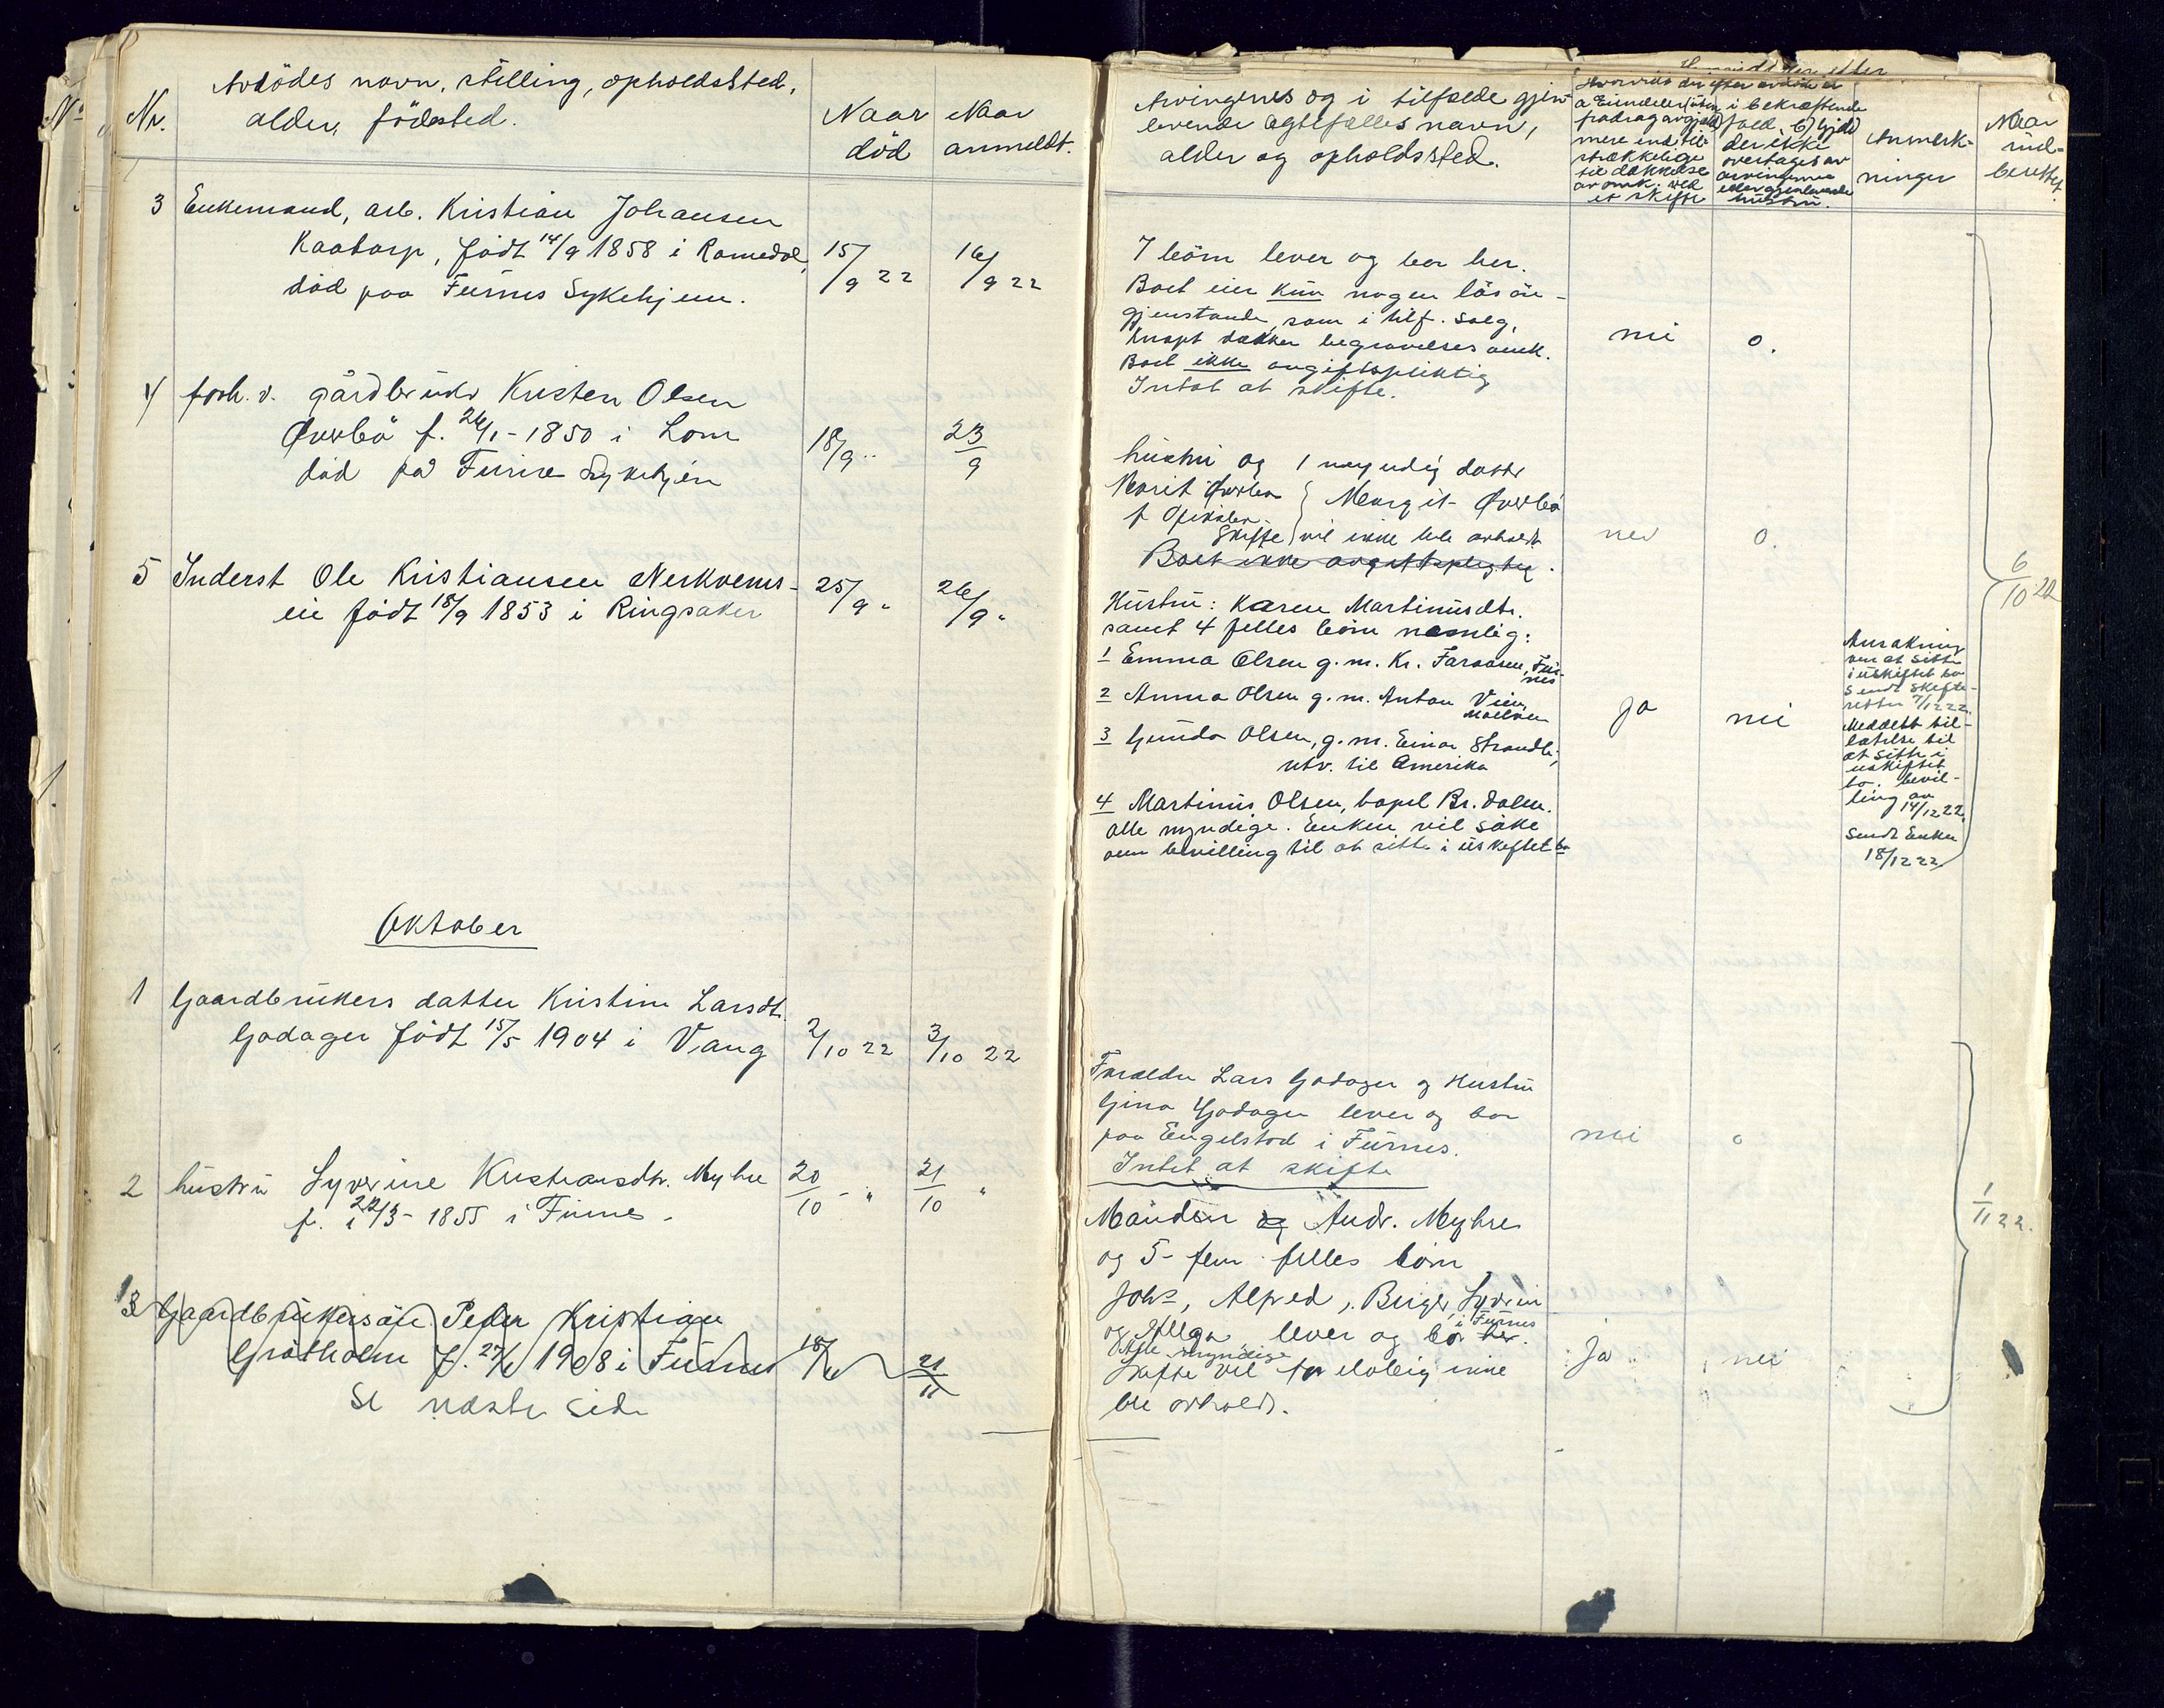 Nr.
Avdödes navn, stilling, opholdssted,
alder, födested.
Naar
död
Naar
anmeldt.
3 Enkemand, arb. Kristian Johansen
Kaatorp, födt 14/9 1858 i Romedal,
död paa Furnes Sykehjem.
15/9 22
16/9 22
4 forh. v. gårdbruker Kristen Olsen
Øverbö f. 26/1 - 1850 i Lom
död på Furnes Sykehjem
18/9 "
23/9
5 Inderst Ole Kristiansen Nerkvems-
eie födt 18/9 1853 i Ringsaker
25/9 "
26/9 "
Oktober
1 Gaardbrukers datter Kristine Larsdt.
Godager födt 15/5 1904 i Vang
2/10 22
3/10 22
2 hustru Syverine Kristiansdtr. Myhre
f. 1855 i Furnes.
20/10 - "
21/10 "
3 Gaardbrukersön Peder Kristian
Gråtholm f. 1908 i Furnes
21/11
Se næste side
Arvingernes og i tilfælde gjen-
levende ægtefælles navn,
alder og opholdssted.
Hvorvidt der efter avdöde er
a Eiendeler (uten
fradrag av gjæld)
mere end til-
strækkelige
til dækkelse
av omk. ved
et skifte
i bekræftende
fald, b) Gjæld
der ikke
overtages av
arvingerne
eller gjenlevende
hustru.
Anmerk-
ninger
Naar
ind-
berettet.
7 börn lever og bor her.
Boet eier kun nogen lösöre-
gjenstande, som i tilf. salg,
knapt dækker begravelses omk.
Boet ikke avgiftspliktig
Intet at skifte.
nei
o.
hustru og 1 myndig datter
Marit Øverbö } Margit Øverbö
Skifte vil ikke bli avholdt
Boet ikke avgiftspligtig.
nei
o.
6/10 22
Hustru: Karen Martinusdtr.
samt 4 felles börn nemlig:
1 Emma Olsen g.m. Kr. Faraasen, Fur-
nes
2 Anna Olsen g.m. Anton Vien,
Moelven
3 Gunda Olsen, g.m. Einar Strandli,
utv. til Amerika
4 Martinus Olsen, bopel Br.dalen.
alle myndige. Enken vil söke
om bevilling til at sitte i uskiftet bo
ja
nei
Ansökning
om at sitte
i uskiftet bo
sendt skifte-
retten 7/12 22.
Meddelt til-
latelse til
at sitte i
uskiftet
bo. bevil-
ling av
14/12 22.
Sendt Enken
18/12 22
Forældre Lars Godager og Hustru
Gina Godager lever og bor
paa Engelstad i Furnes.
Intet at skifte
nei
o
Manden Andr. Myhre
og 5 - fem felles börn
Johs, Alfred, Birger, Syverin
i Furnes
og Helga lever og bor her.
Alle myndige
Skifte vil forelöbig ikke
bli avholdt.
ja
nei
1/11 22.